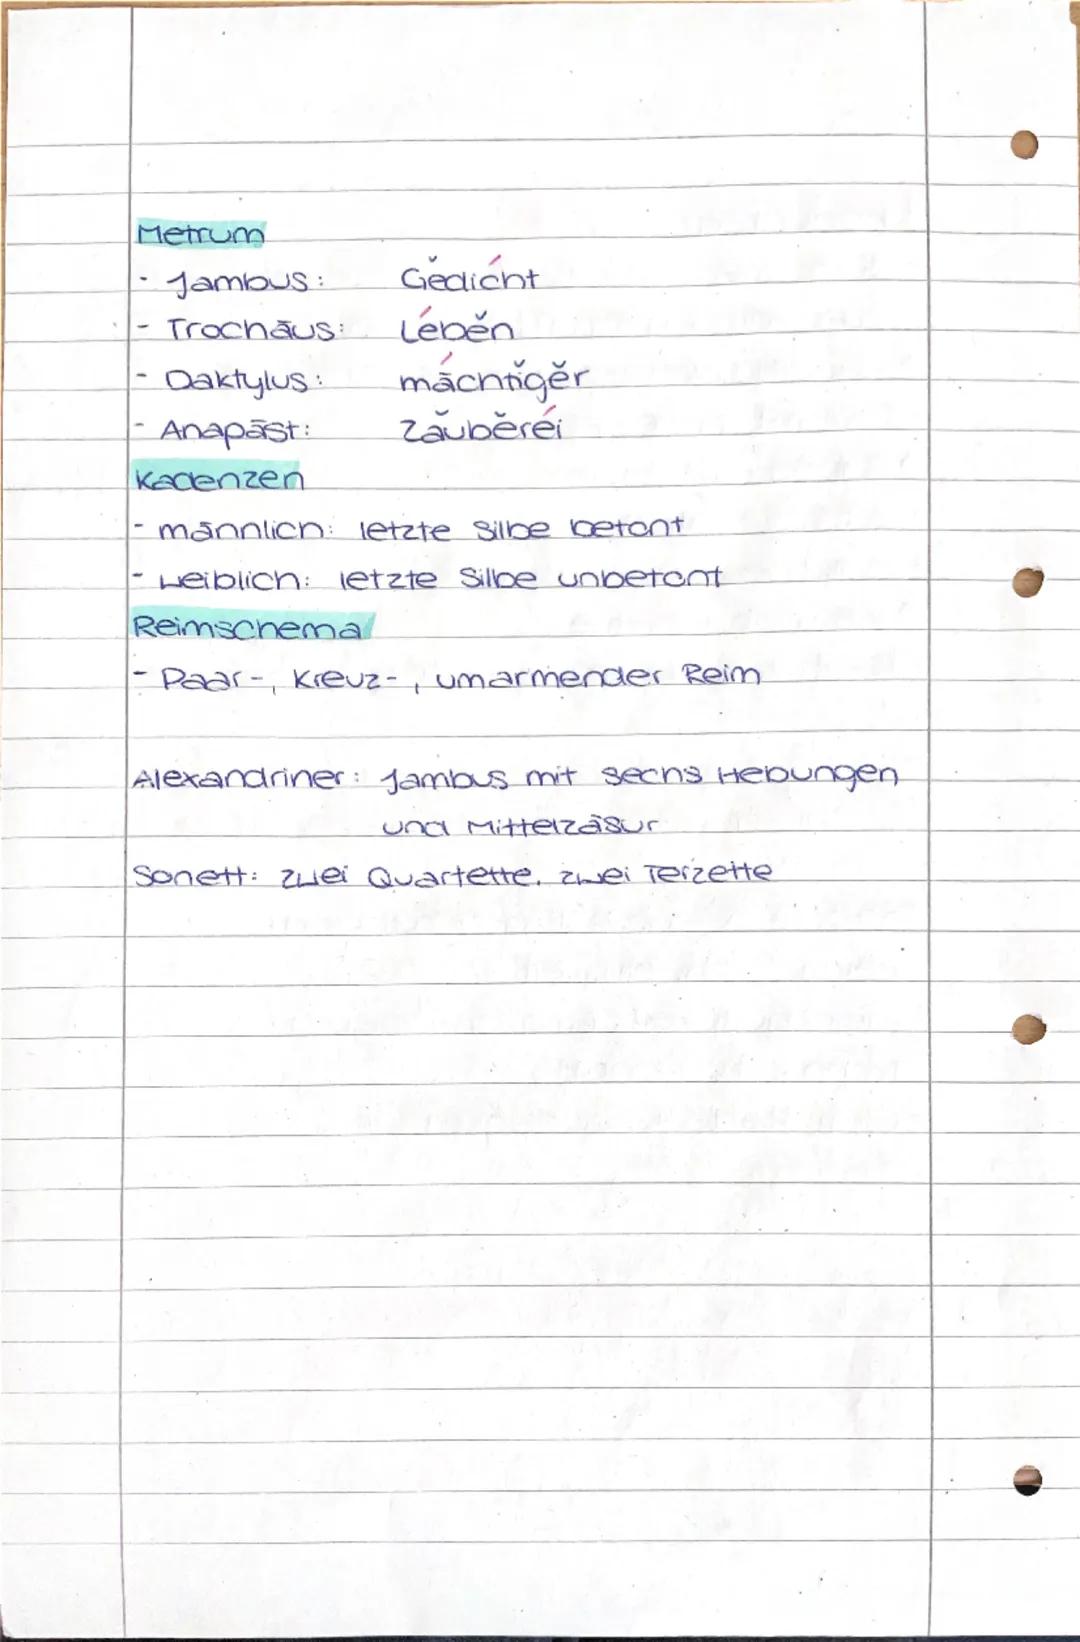 Metrum
- Jambus: Gĕdícht
- Trochäus: Lébĕn
- Daktylus: mä́chtĭgĕr
- Anapäst: Zăubĕréi
Kadenzen
- männlich: letzte Silbe betont
- weiblich: letzte Silbe unbetont
Reimschema
- Paar-, Kreuz-, umarmender Reim
Alexandriner: Jambus mit sechs Hebungen
und Mittelzäsur
Sonett: zwei Quartette, zwei Terzette